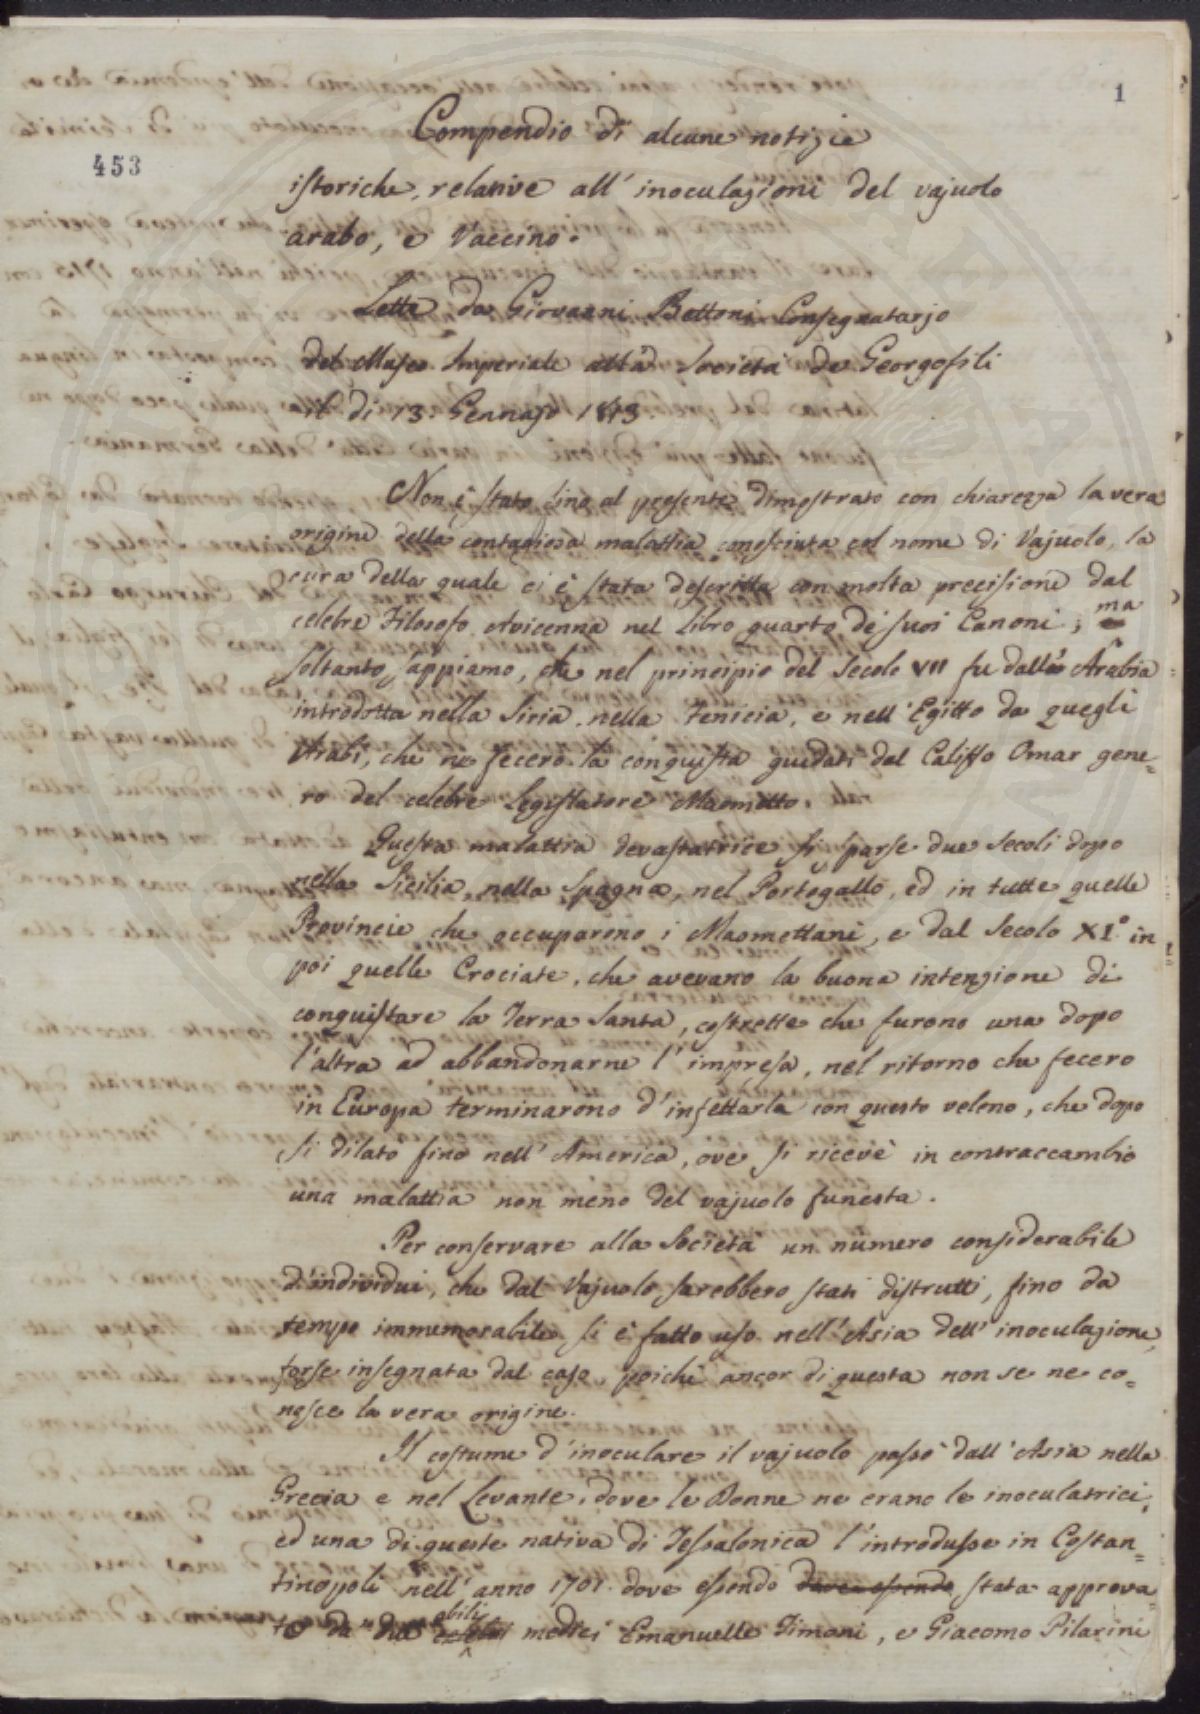 1
453
Compendio di alcune notizie
istoriche, relative all' inoculazioni del vajuolo
arabo, e Vaccino.
Lette da Giovanni Bettoni Consegnatario
del Museo Imperiale alla Società de Georgofili
il di 13. Gennajo 1813.
Non è stato fino al presente dimostrato con chiarezza la vera
origine della contagiosa malattia conosciuta col nome di Vajuolo, la
cura della quale ci è stata descritta con molta precisione dal
celebre Filosofo Avicenna nel Libro quarto de suoi Canoni; ma
soltanto sappiamo, che nel principio del Secolo VII fu dall' Arabia
introdotta nella Siria, nella Fenicia, e nell' Egitto da quegli
Arabi, che ne fecero la conquista guidati dal Califfo Omar gene=
ro del celebre Legislatore Maometto.
Questa malattia devastatrice si sparse due secoli dopo
nella Sicilia, nella Spagna, nel Portogallo, ed in tutte quelle
Provincie che occuparono i Maomettani, e dal Secolo XI.º in
poi quelle Crociate, che avevano la buona intenzione di
conquistare la Terra Santa, costrette che furono una dopo
l'altra ad abbandonarne l' impresa, nel ritorno che fecero
in Europa terminarono d' infettarla con questo veleno, che dopo
si dilatò fino nell' America, ove si ricevè in contraccambio
una malattia non meno del vajuolo funesta.
Per conservare alla Società un numero considerabile
d'individui, che dal Vajuolo sarebbero stati distrutti, fino da
tempo immemorabile si è fatto uso nell' Asia dell' inoculazione,
forse insegnata dal caso, poichè ancor di questa non se ne co=
nosce la vera origine.
Il costume d' inoculare il vajuolo passò dall' Asia nella
Grecia e nel Levante, dove le Donne ne erano le inoculatrici,
ed una di queste nativa di Tessalonica l' introdusse in Costan=
tinopoli nell' anno 1701. dove essendo dove essendo stata approva=
to da due abili medici Emanuelle Timoni, e Giacomo Pilarini